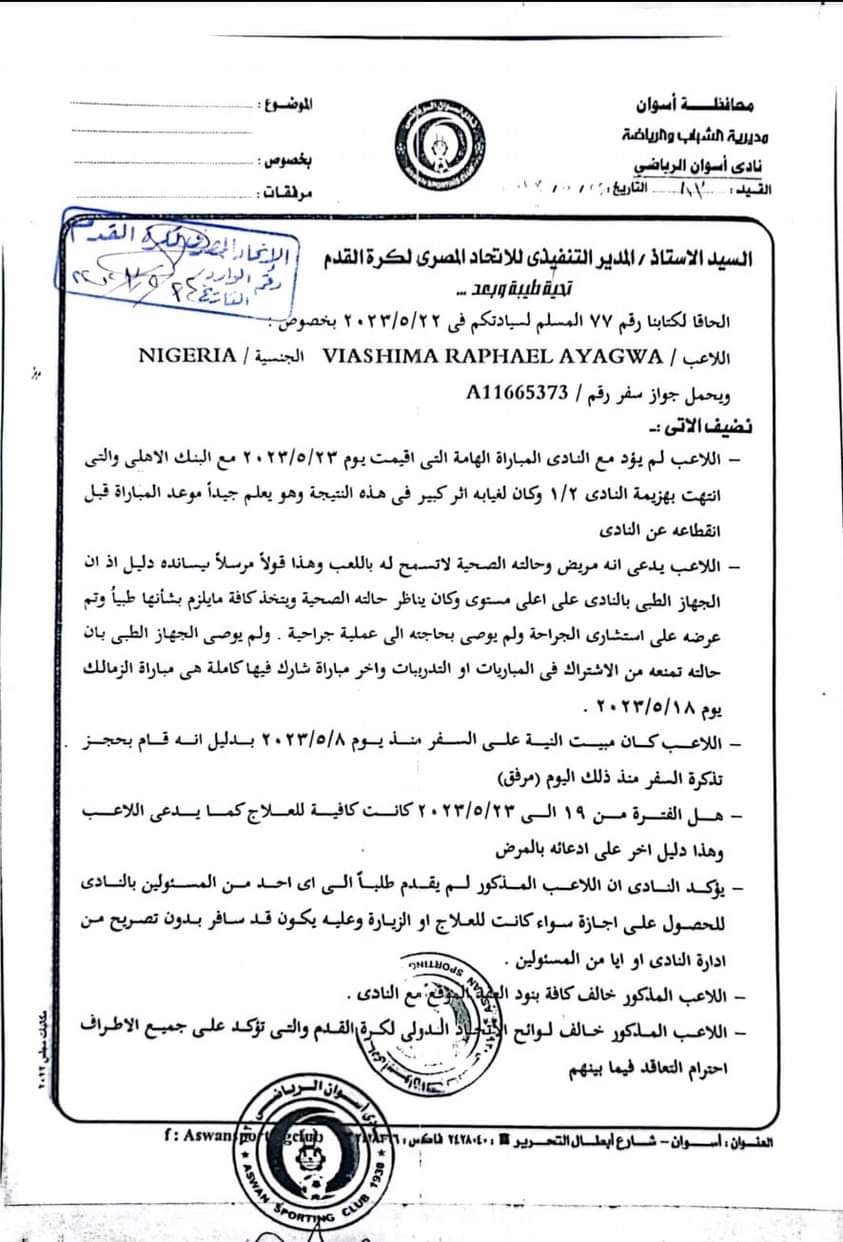 محافظة أسوان
مديرية الشباب والرياضة
نادى أسوان الرياضي
القيد : التاريخ :
الموضوع :
بخصوص :
مرفقات :
نادى أسوان الرياضى
ASWAN SPORTING CLUB
الإتحاد المصرى لكرة القدم
رقم الوارد
التاريخ
السيد الاستاذ / المدير التنفيذى للاتحاد المصرى لكرة القدم
تحية طيبة وبعد ...
الحاقا لكتابنا رقم ٧٧ المسلم لسيادتكم فى ٢٠٢٣/٥/٢٢ بخصوص :
اللاعب / VIASHIMA RAPHAEL AYAGWA الجنسية / NIGERIA
ويحمل جواز سفر رقم / A11665373
نضيف الاتى :ـ
– اللاعب لم يؤد مع النادى المباراة الهامة التى اقيمت يوم ٢٠٢٣/٥/٢٣ مع البنك الاهلى والتى
انتهت بهزيمة النادى ١/٢ وكان لغيابه اثر كبير فى هذه النتيجة وهو يعلم جيداً موعد المباراة قبل
انقطاعه عن النادى
– اللاعب يدعى انه مريض وحالته الصحية لاتسمح له باللعب وهذا قولاً مرسلاً يسانده دليل اذ ان
الجهاز الطبى بالنادى على اعلى مستوى وكان يناظر حالته الصحية ويتخذ كافة مايلزم بشأنها طبياً وتم
عرضه على استشارى الجراحة ولم يوصى بحاجته الى عملية جراحية . ولم يوصى الجهاز الطبى بان
حالته تمنعه من الاشتراك فى المباريات او التدريبات واخر مباراة شارك فيها كاملة هى مباراة الزمالك
يوم ٢٠٢٣/٥/١٨ .
– اللاعب كان مبيت النية على السفر منذ يوم ٢٠٢٣/٥/٨ بدليل انه قام بحجز
تذكرة السفر منذ ذلك اليوم (مرفق)
– هل الفترة من ١٩ الى ٢٠٢٣/٥/٢٣ كانت كافية للعلاج كما يدعى اللاعب
وهذا دليل اخر على ادعائه بالمرض
– يؤكد النادى ان اللاعب المذكور لم يقدم طلباً الى اى احد من المسئولين بالنادى
للحصول على اجازة سواء كانت للعلاج او الزيارة وعليه يكون قد سافر بدون تصريح من
ادارة النادى او ايا من المسئولين .
– اللاعب المذكور خالف كافة بنود العقد الموقع مع النادى .
– اللاعب المذكور خالف لوائح الاتحاد الدولى لكرة القدم والتى تؤكد على جميع الاطراف
احترام التعاقد فيما بينهم
ASWAN SPORTING
مكاتبات مجلس ٢٠٢٢
العنوان : أسوان – شارع أبطال التحرير ☎ : ٢٤٢٨٠٤٠ فاكس : f : Aswansportingclub
نادى أسوان الرياضى
ASWAN SPORTING CLUB 1930